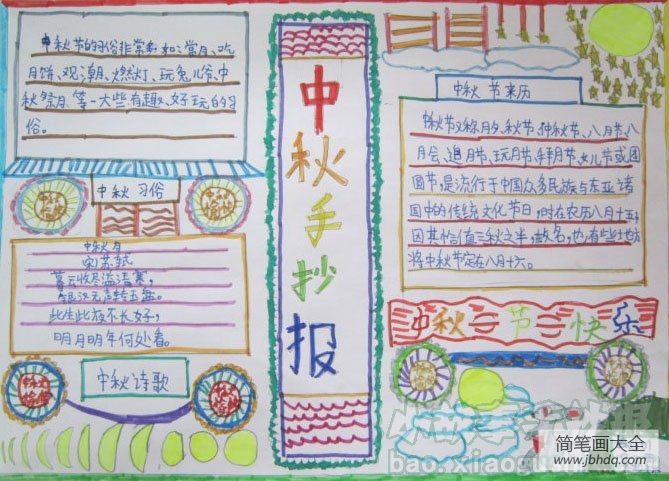 中秋节的习俗非常多如:赏月、吃
月饼、观潮、燃灯、玩兔儿爷、中
秋祭月等一大些有趣、好玩的习
俗。
中秋习俗
中秋月
宋苏轼
暮云收尽溢清寒,
银汉无声转玉盘。
此生此夜不长好,
明月明年何处看。
中秋诗歌
中秋手抄报
中秋节来历
中秋节又称月夕、秋节、仲秋节、八月节、八
月会、追月节、玩月节、拜月节、女儿节或团
圆节,是流行于中国众多民族与东亚诸
国中的传统文化节日,时在农历八月十五;
因其恰值三秋之半,故名,也有些地方
将中秋节定在八月十六。
中秋节快乐
简笔画大全
www.jbhdq.com